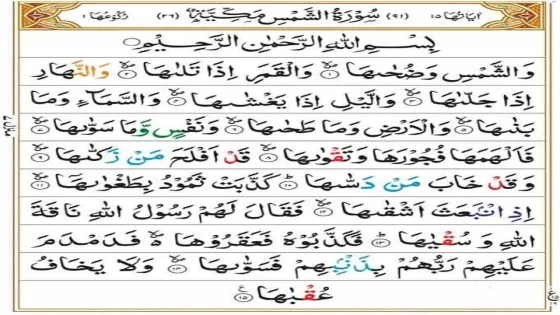 اٰیَاتُهَا ۱۵ (۹۱) سُوْرَةُ الشَّمْسِ مَكِّيَّةٌ (۲۶) رُكُوْعُهَا ۱
بِسْمِ اللّٰهِ الرَّحْمٰنِ الرَّحِيْمِ
وَالشَّمْسِ وَضُحٰىهَا ۱ وَالْقَمَرِ اِذَا تَلٰىهَا ۲ وَالنَّهَارِ
اِذَا جَلّٰىهَا ۳ وَالَّيْلِ اِذَا يَغْشٰىهَا ۴ وَالسَّمَآءِ وَمَا
بَنٰىهَا ۵ وَالْاَرْضِ وَمَا طَحٰىهَا ۶ وَنَفْسٍ وَّمَا سَوّٰىهَا ۷
فَاَلْهَمَهَا فُجُوْرَهَا وَتَقْوٰىهَا ۸ قَدْ اَفْلَحَ مَنْ زَكّٰىهَا ۹
وَقَدْ خَابَ مَنْ دَسّٰىهَا ۱۰ كَذَّبَتْ ثَمُوْدُ بِطَغْوٰىهَا ۱۱
اِذِ انْۢبَعَثَ اَشْقٰىهَا ۱۲ فَقَالَ لَهُمْ رَسُوْلُ اللّٰهِ نَاقَةَ
اللّٰهِ وَسُقْيٰهَا ۱۳ فَكَذَّبُوْهُ فَعَقَرُوْهَا فَدَمْدَمَ
عَلَيْهِمْ رَبُّهُمْ بِذَنْۢبِهِمْ فَسَوّٰىهَا ۱۴ وَلَا يَخَافُ
عُقْبٰهَا ۱۵